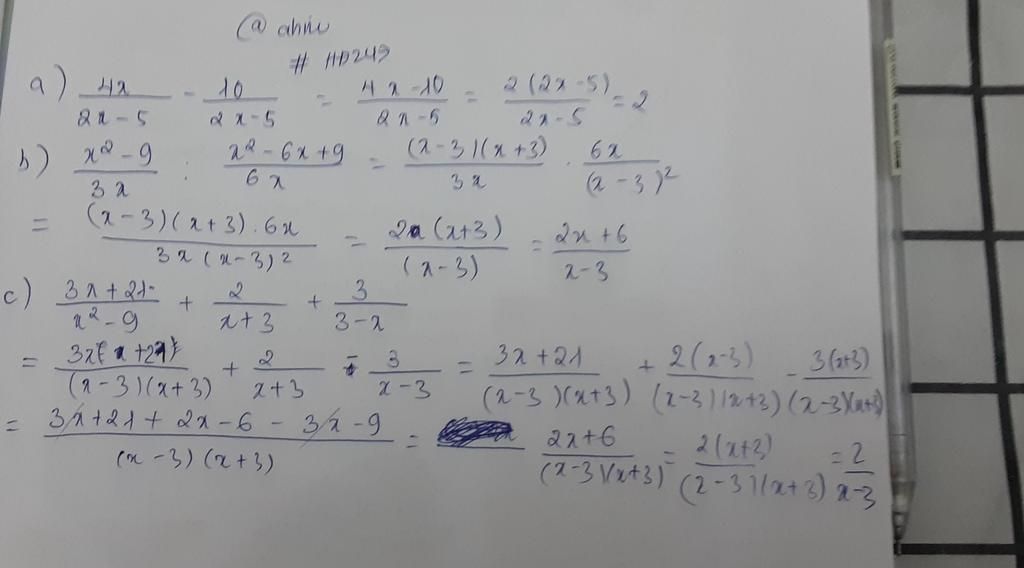 @ ahiu
# HD249
a) 4x/(2x-5) - 10/(2x-5) = (4x-10)/(2x-5) = 2(2x-5)/(2x-5) = 2
b) (x²-9)/(3x) : (x²-6x+9)/(6x) = (x-3)(x+3)/(3x) . 6x/(x-3)²
= (x-3)(x+3).6x/(3x(x-3)²) = 2(x+3)/(x-3) = (2x+6)/(x-3)
c) (3x+21)/(x²-9) + 2/(x+3) + 3/(3-x)
= (3x+21)/((x-3)(x+3)) + 2/(x+3) - 3/(x-3) = (3x+21)/((x-3)(x+3)) + 2(x-3)/((x-3)(x+3)) - 3(x+3)/((x-3)(x+3))
= (3x+21+2x-6-3x-9)/((x-3)(x+3)) = (2x+6)/((x-3)(x+3)) = 2(x+3)/((x-3)(x+3)) = 2/(x-3)